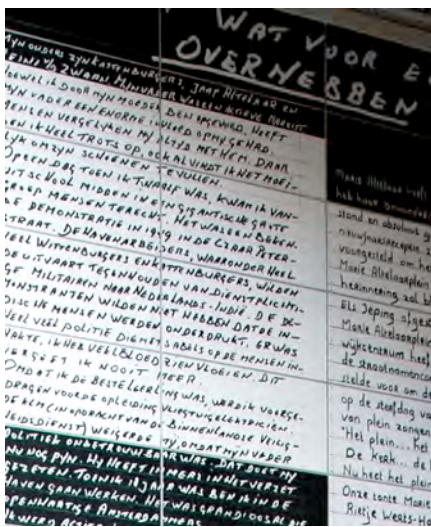 WAT VOOR E
OVERHEBBEN
MIJN OUDERS ZIJN KATTENBURGERS, JAAP ALTELAAR EN
ZWAAN. MIJN VADER WAS EEN ACTIEVE
HOEWEL IK DOOR MIJN MOEDER BEN OPGEVOED, HEEFT
MIJN VADER EEN ENORME INVLOED OP MIJ GEHAD.
MENSEN VERGELIJKEN MIJ ALTIJD MET HEM. DAAR
BEN IK HEEL TROTS OP, OOK AL VINDT IK HET MOEI-
LIJK OM ZIJN SCHOENEN TE VULLEN.
OP EEN DAG TOEN IK TWAALF WAS, KWAM IK VAN-
UIT SCHOOL MIDDEN IN EEN GIGANTISCHE GROTE
GROEP MENSEN TERECHT. HET WAS EEN BEKEN-
DE DEMONSTRATIE IN 19 9 IN DE CZAAR PETER-
STRAAT. DE HAVENARBEIDERS, WAARONDER HEEL
VEEL WITTENBURGERS EN KATTENBURGERS, WILDEN
DE UITVAART TEGENHOUDEN VAN DIENSTPLICHTI-
GE MILITAIREN NAAR NEDERLANDS-INDIË. DE DE-
MONSTRANTEN WILDEN NIET HEBBEN DAT DE IN-
DISCHE MENSEN WERDEN ONDERDRUKT. ER WAS
HEEL VEEL POLITIE DIE MET SABELS OP DE MENSEN IN-
HAKTE. IK HEB VEEL BLOED ZIEN VLOEIEN. DIT
VERGEET IK NOOIT MEER.
OMDAT IK DE BESTE LEERLING WAS, WERD IK VOORGE-
DRAGEN VOOR DE OPLEIDING VLIEGTUIGELEKTRICIEN.
DE KLM (IN OPDRACHT VAN DE BINNENLANDSE VEILIG-
HEIDSDIENST) WEIGERDE MIJ, OMDAT MIJN VADER
POLITIEK ONBETROUWBAAR WAS. DAT DOET MIJ
NU NOG PIJN. HIJ HEEFT IMMERS IN HET VERZET
GEZETEN. TOEN IK 18 JAAR WAS BEN IK IN DE
HAVEN GAAN WERKEN. HET WAS GRANDIOOS
OPENHARTIGE AMSTERDAMMERS
Marie Altelaar
het haar
stond en absoluut
nieuwjaarsreceptie
voorgesteld om he
Marie Altelaarplein
herinnering zal bl
Els Jeping
Marie Altelaarplein
wijkcentrum heef
de straatnamencom
stelde voor om de
op de sterfdag va
van plein zongen
'Het plein... het
De kerk... de
Nu heel het plein
Onze tante Marie
Rietje Weets-